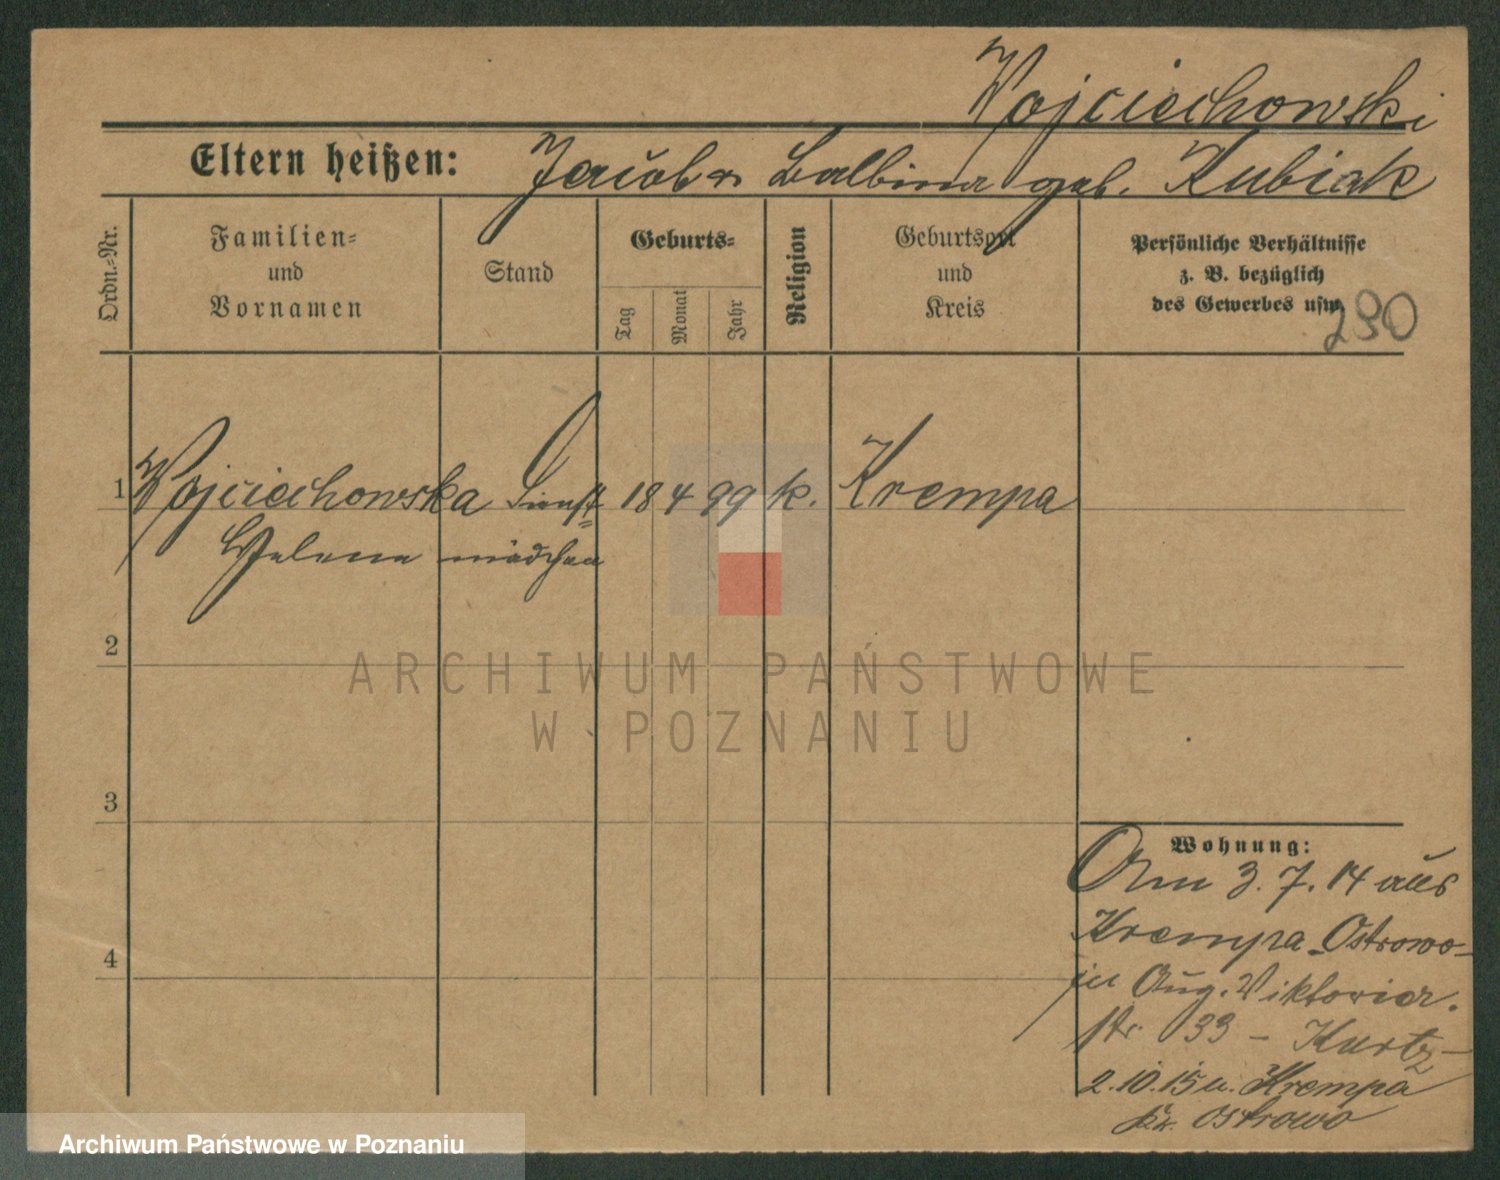 Wojciechowski
Eltern heißen: Jacob u. Balbina geb. Kubiak
Ordn.-Nr.
Familien-
und
Vornamen
Stand
Geburts-
Tag
Monat
Jahr
Religion
Geburtsort
und
Kreis
Persönliche Verhältnisse
z. B. bezüglich
des Gewerbes usw.
290
1 Wojciechowska Dienst- 18 4 99 k. Krempa
Helene mädchen
2
3
4
Wohnung:
Am 3. 7. 14 aus
Krempa Ostrowo-
in Aug. Viktoria-
str. 33 - Kurtz-
2.10.15 n. Krempa
Kr. Ostrowo
ARCHIWUM PAŃSTWOWE
W POZNANIU
Archiwum Państwowe w Poznaniu